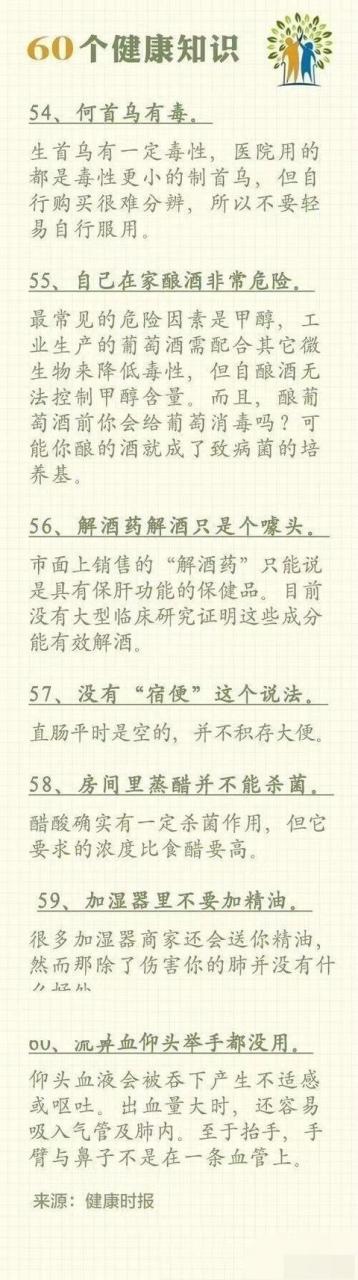 60个健康知识
54、何首乌有毒。
生首乌有一定毒性，医院用的
都是毒性更小的制首乌，但自
行购买很难分辨，所以不要轻
易自行服用。
55、自己在家酿酒非常危险。
最常见的危险因素是甲醇，工
业生产的葡萄酒需配合其它微
生物来降低毒性，但自酿酒无
法控制甲醇含量。而且，酿葡
萄酒前你会给葡萄消毒吗？可
能你酿的酒就成了致病菌的培
养基。
56、解酒药解酒只是个噱头。
市面上销售的“解酒药”只能说
是具有保肝功能的保健品。目前
没有大型临床研究证明这些成分
能有效解酒。
57、没有“宿便”这个说法。
直肠平时是空的，并不积存大便。
58、房间里蒸醋并不能杀菌。
醋酸确实有一定杀菌作用，但它
要求的浓度比食醋要高。
59、加湿器里不要加精油。
很多加湿器商家还会送你精油，
然而那除了伤害你的肺并没有什
么好处
60、流鼻血仰头举手都没用。
仰头血液会被吞下产生不适感
或呕吐。出血量大时，还容易
吸入气管及肺内。至于抬手，手
臂与鼻子不是在一条血管上。
来源：健康时报